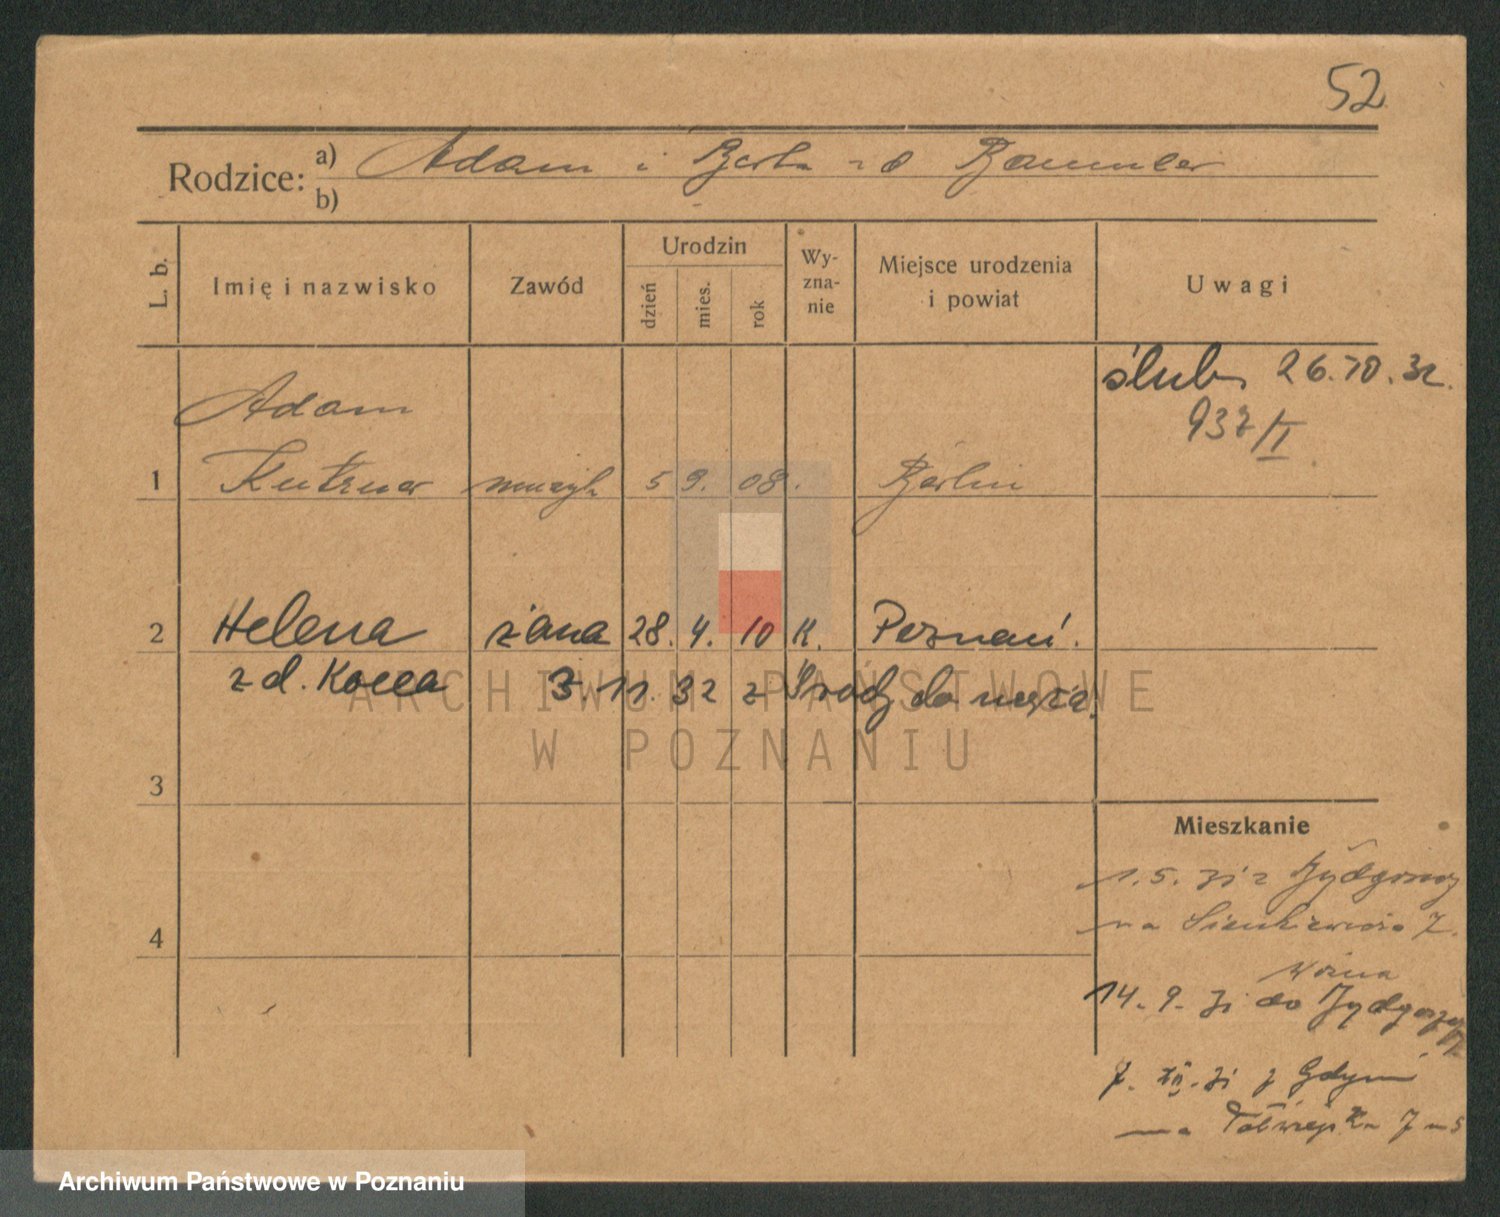 52
Rodzice: a) Adam i Berta z d
b)
L. b. Imię i nazwisko Zawód Urodzin dzień mies. rok Wy-zna-nie Miejsce urodzenia i powiat Uwagi
ślub 26.10.32.
932/II
Adam
1 Kutzner muzyk 5 9. 08. Berlin
2 Helena żona 28. 4. 10 K. Poznań.
z d. Kocea 3.11.32 z Środy do męża.
3
Mieszkanie
1.5. 31 z Bydgoszczy
na Sienkiewicza 7.
4
14. 9. 31 do Bydgoszczy
7. XII. 31 z Gdyni
na
ARCHIWUM PAŃSTWOWE
W POZNANIU
Archiwum Państwowe w Poznaniu